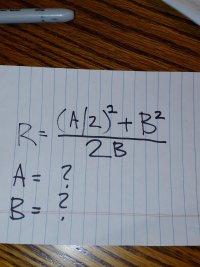 R = (A/2)² + B² / 2B
A = ?
B = ?